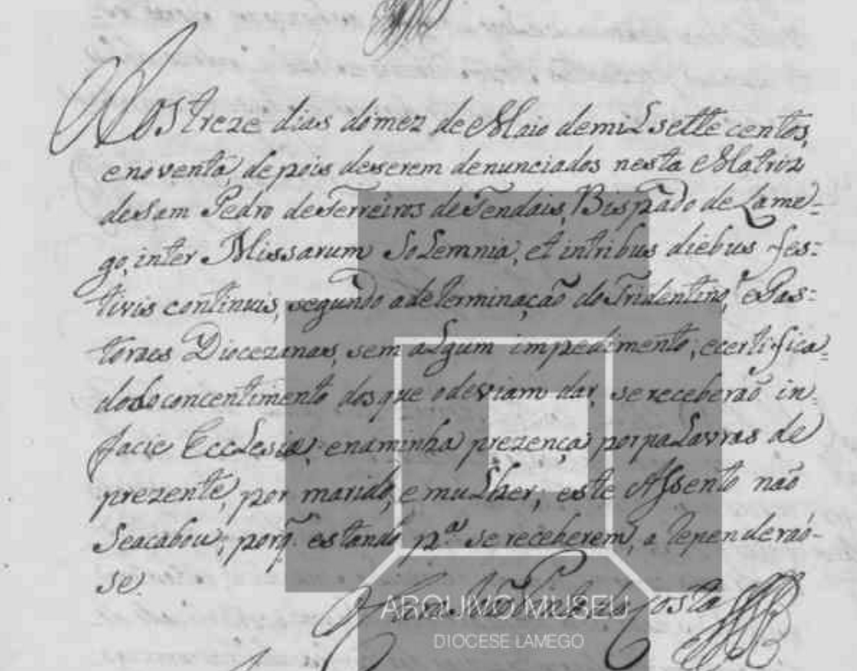 Aos treze dias do mez de Maio de mil sette centos,
e noventa, depois de serem denunciados nesta Matriz
de Sam Pedro de Ferreiros de Tendais, Bispado de Lame-
go, inter Missarum Solemnia, et in tribus diebus fes:
tivis continuis, segundo a determinação do Tridentino, e Pas:
toraes Diocezanas, sem algum impedimento; e certifica-
do do concentimento dos que o deviam dar, se receberaõ in
facie Ecclesia, e na minha prezença por palavras de
prezente, por marido, e mulher; este Assento não
Se acabou; porq. estando pª se receberem, a Rependeraõ-
se.
Costa
ARQUIVO MUSEU
DIOCESE LAMEGO